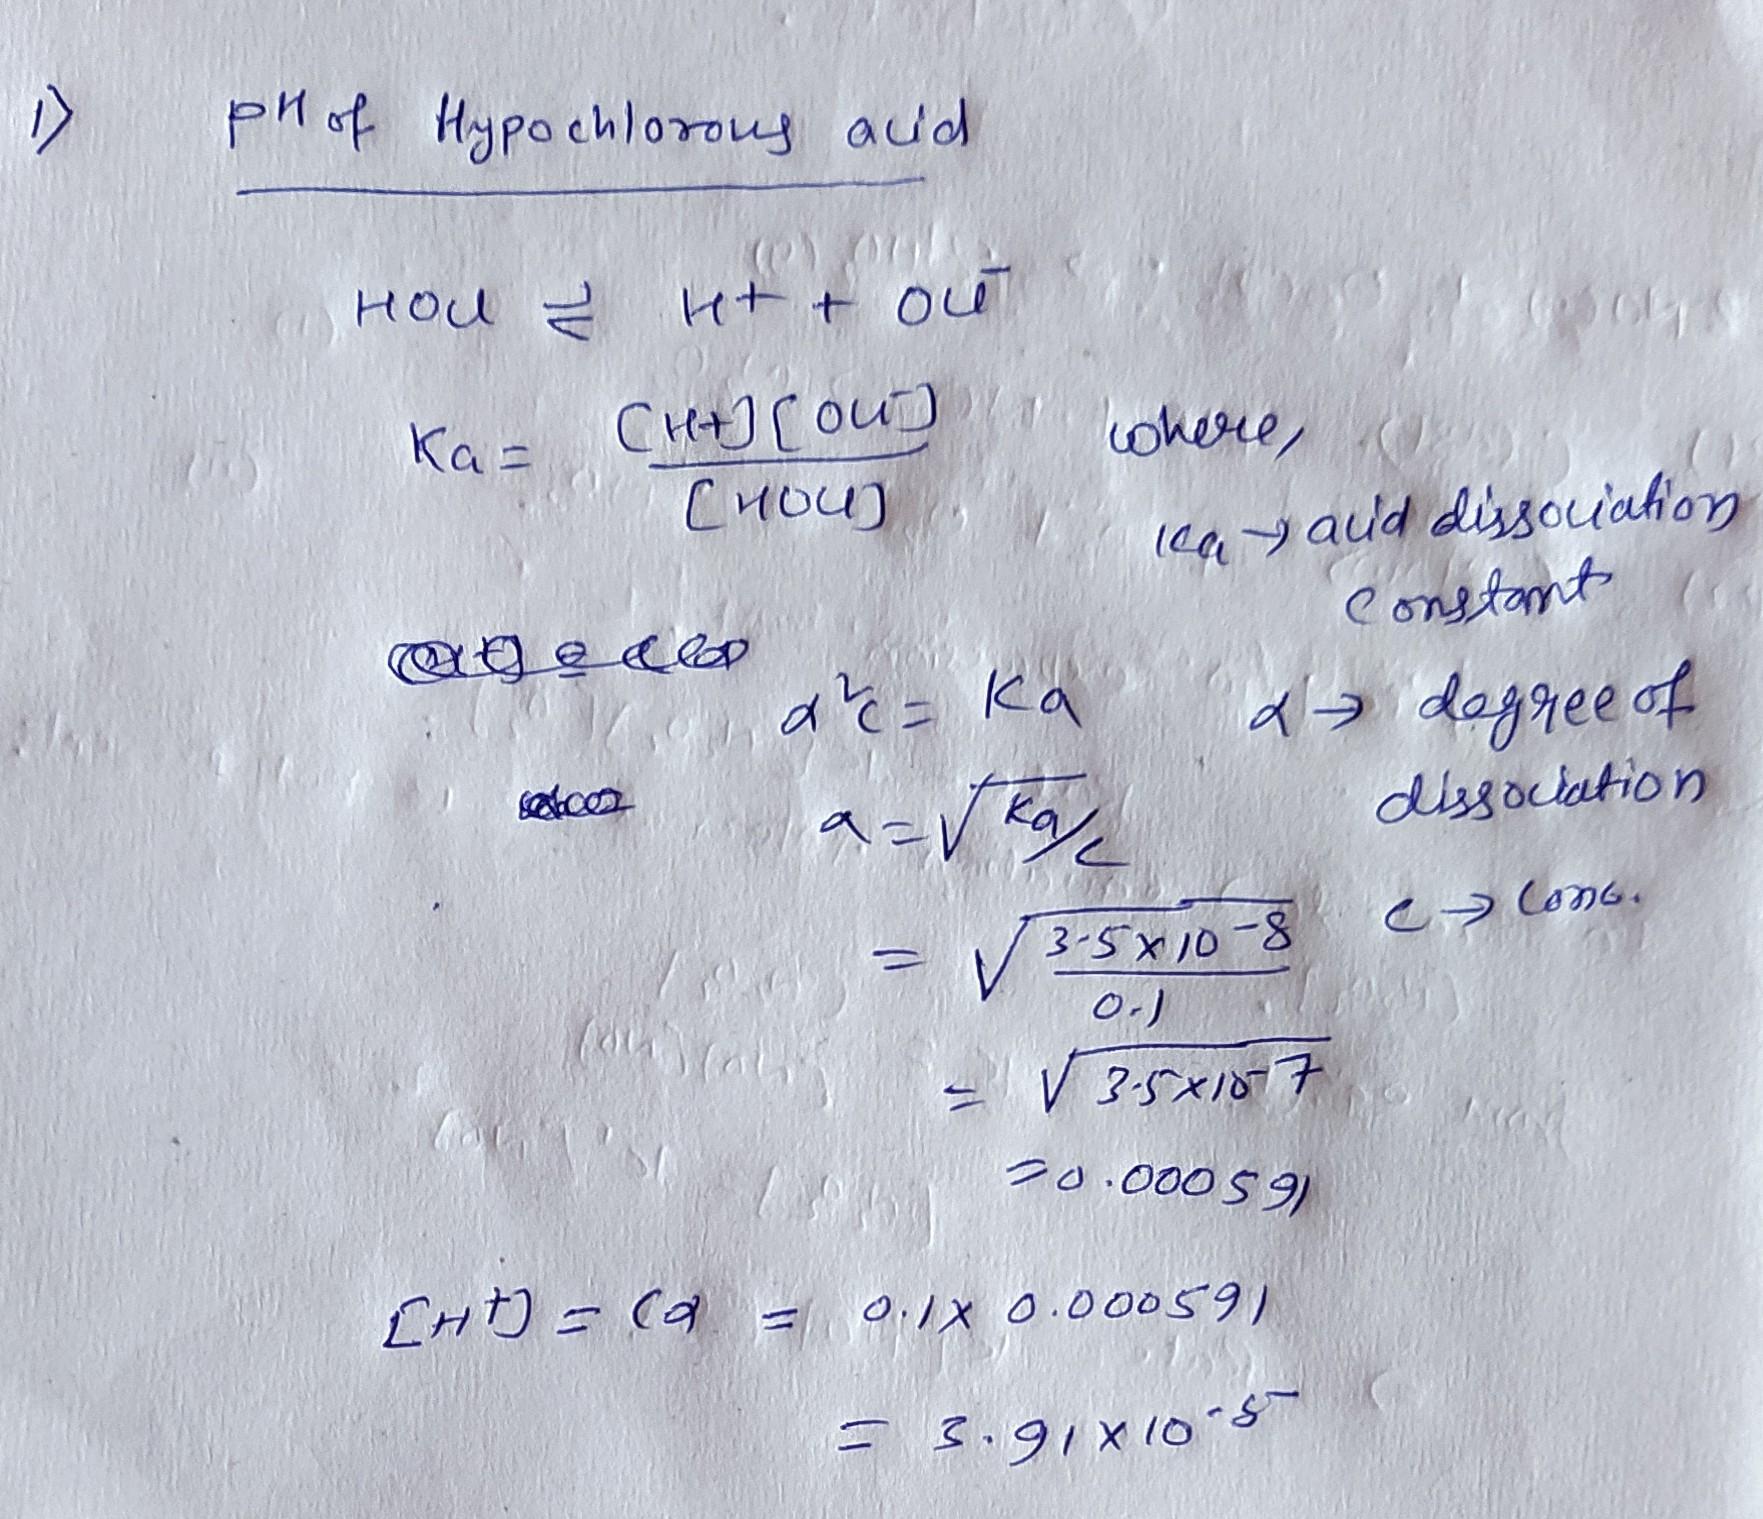 1) pH of Hypochlorous acid
HOCl ⇌ H+ + OCl⁻
Ka = [H+][OCl⁻] / [HOCl]
where,
Ka → acid dissociation
constant
α²c = Ka
α → degree of
dissociation
α = √Ka/c
c → conc.
= √3.5 × 10⁻⁸ / 0.1
= √3.5 × 10⁻⁷
= 0.000591
[H+] = Cα = 0.1 × 0.000591
= 3.91 × 10⁻⁵